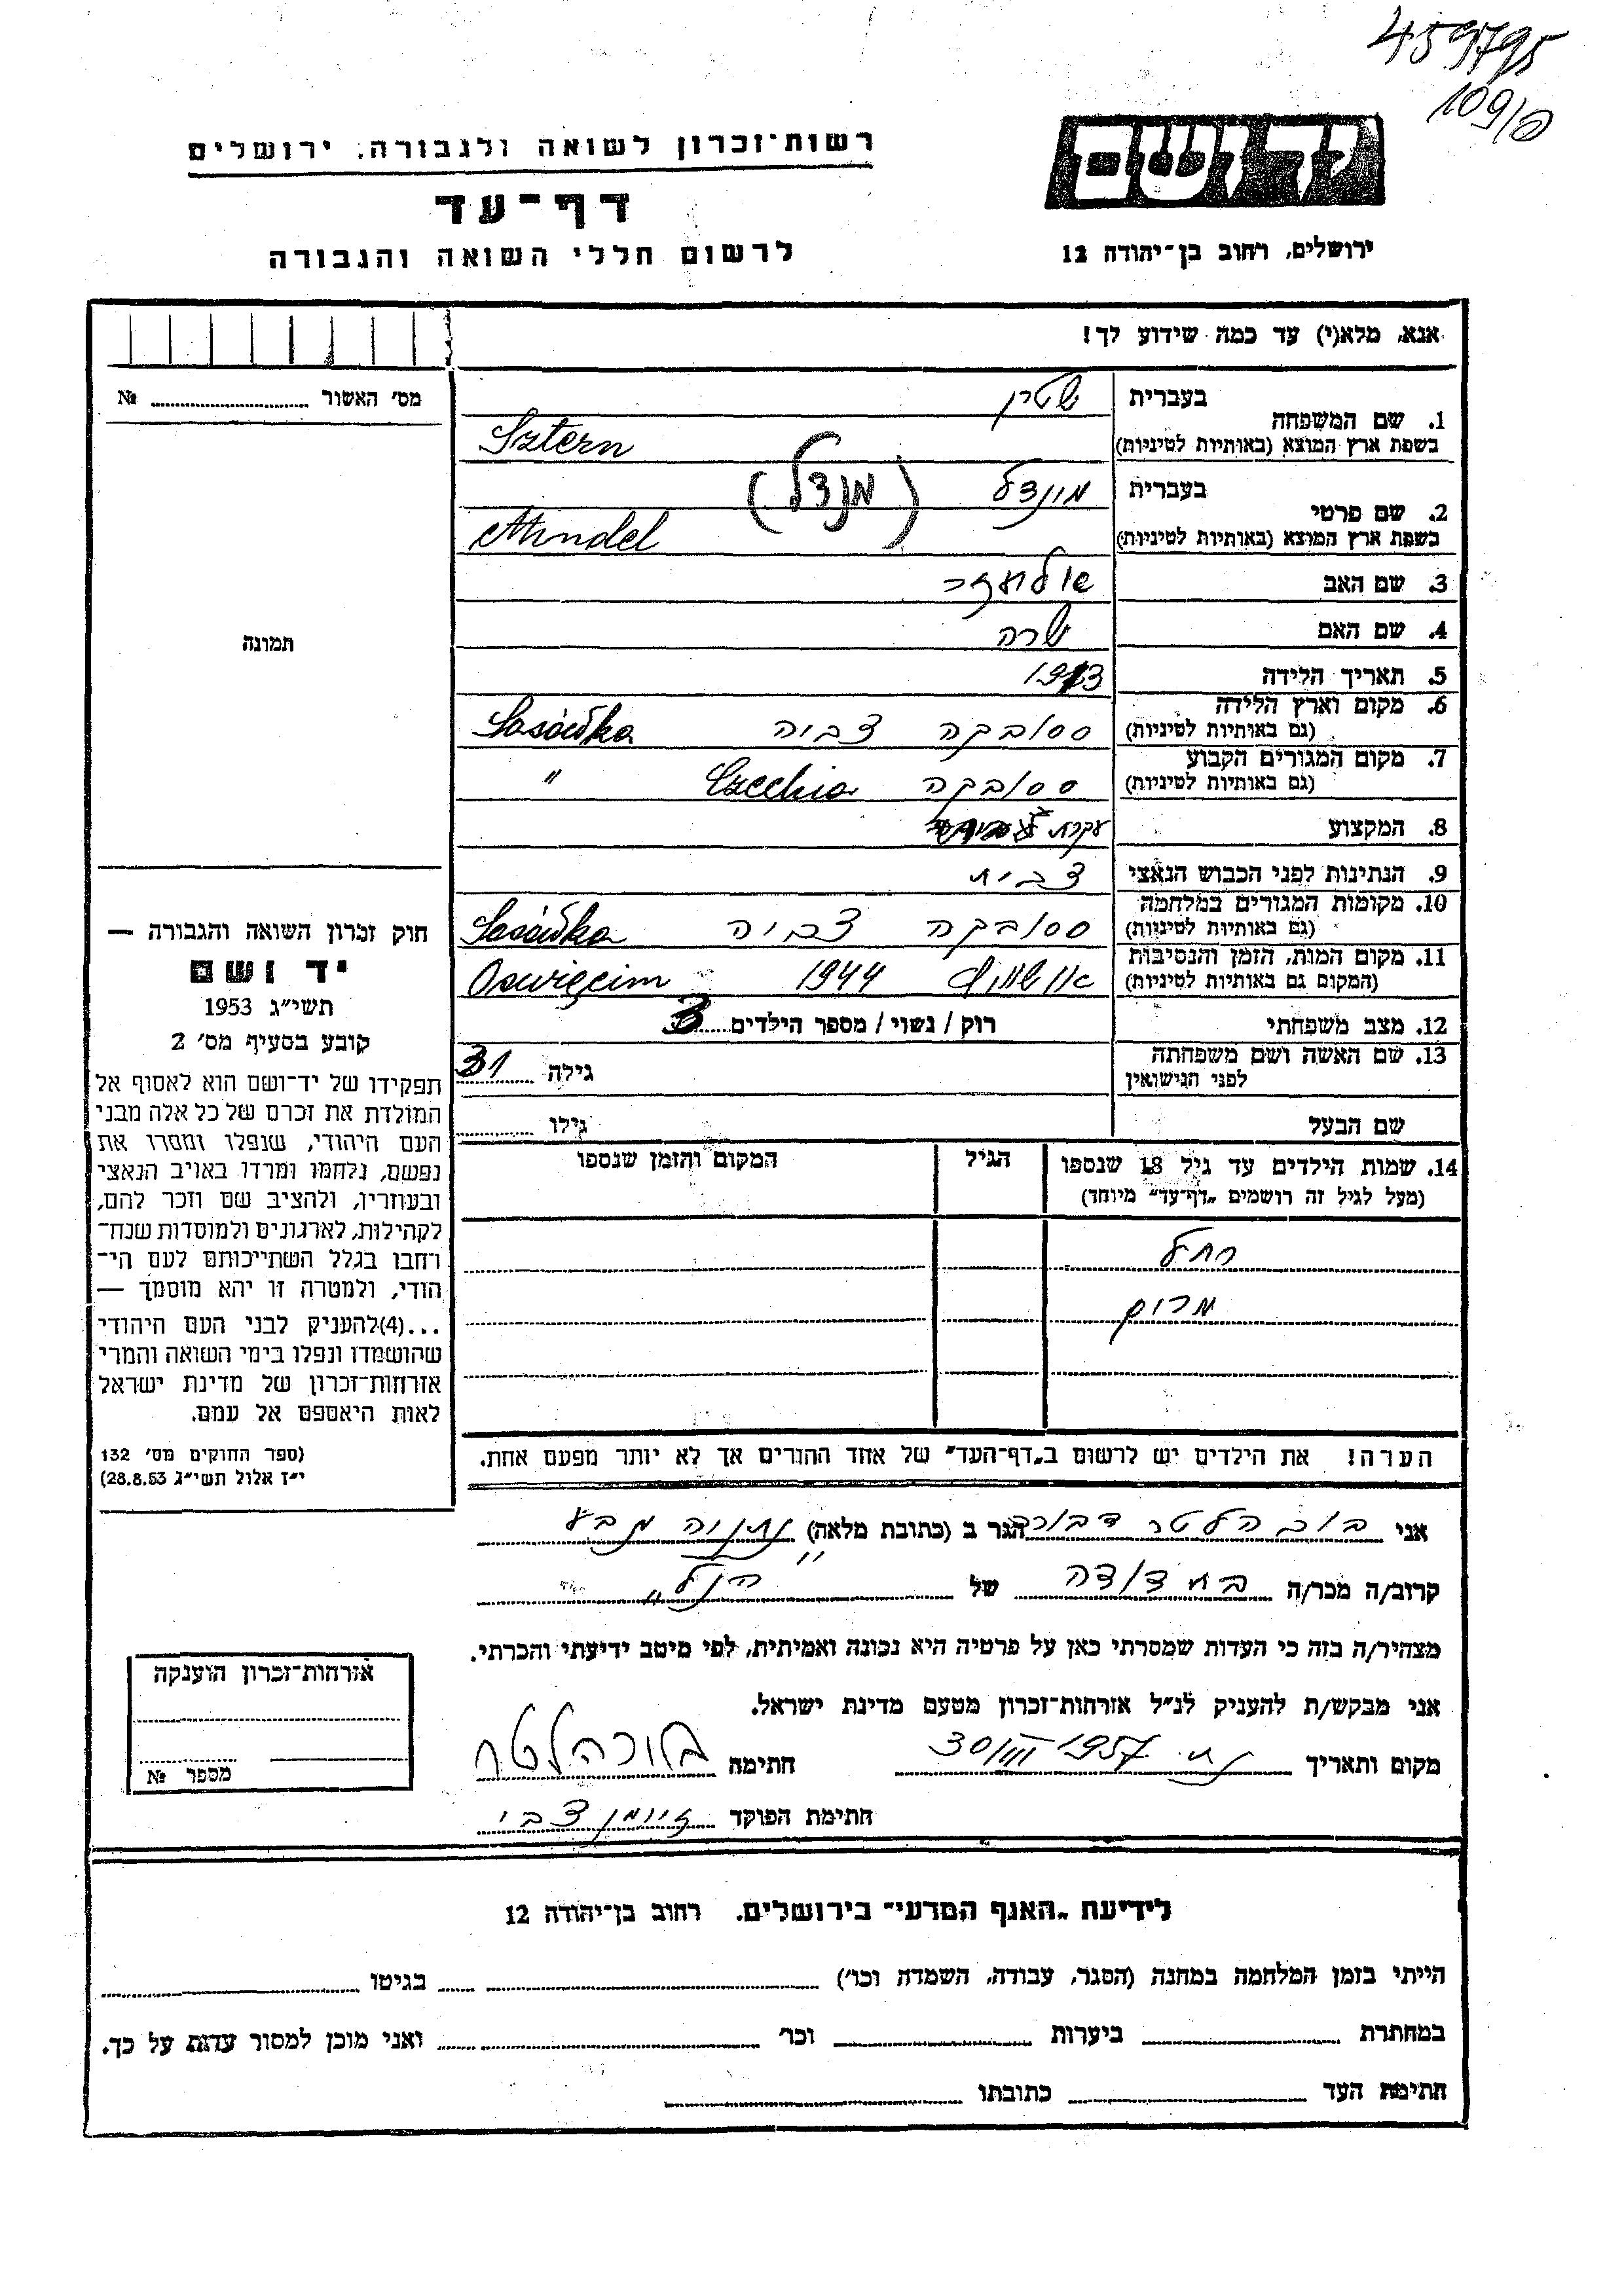 459795
109/ס
רשות־זכרון לשואה ולגבורה, ירושלים
יד ושם
דף־עד
לרשום חללי השואה והגבורה
ירושלים, רחוב בן־יהודה 12
אנא, מלא(י) עד כמה שידוע לך!
מס׳ האשור ........ №
תמונה
1. שם המשפחה בעברית שטרן
בשפת ארץ המוצא (באותיות לטיניות) Sztern
2. שם פרטי בעברית מינדל (מנדל)
בשפת ארץ המוצא (באותיות לטיניות) Mindel
3. שם האב
4. שם האם שרה
5. תאריך הלידה 1913
6. מקום וארץ הלידה (גם באותיות לטיניות) ססובקה צכיה Sasówka
7. מקום המגורים הקבוע (גם באותיות לטיניות) ססובקה Czechia "
8. המקצוע עקרת
9. הנתינות לפני הכבוש הנאצי צכית
10. מקומות המגורים במלחמה (גם באותיות לטיניות) ססובקה צכיה Sasówka
11. מקום המות, הזמן והנסיבות (המקום גם באותיות לטיניות) אושוויץ 1944 Oswięcim
12. מצב משפחתי רוק / נשוי / מספר הילדים 3
13. שם האשה ושם משפחתה לפני הנישואין גילה 31
שם הבעל גילו
14. שמות הילדים עד גיל 18 שנספו הגיל המקום והזמן שנספו
(מעל לגיל זה רושמים „דף־עד״ מיוחד)
רחל
מרים
הערה! את הילדים יש לרשום ב„דף־העד״ של אחד ההורים אך לא יותר מפעם אחת.
חוק זכרון השואה והגבורה —
יד ושם
תשי״ג 1953
קובע בסעיף מס׳ 2
תפקידו של יד־ושם הוא לאסוף אל
המולדת את זכרם של כל אלה מבני
העם היהודי, שנפלו ומסרו את
נפשם, נלחמו ומרדו באויב הנאצי
ובעוזריו, ולהציב שם וזכר להם,
לקהילות, לארגונים ולמוסדות שנח־
רחבו בגלל השתייכותם לעם הי־
הודי, ולמטרה זו יהא מוסמך —
...(4)להעניק לבני העם היהודי
שהושמדו ונפלו בימי השואה והמרי
אזרחות־זכרון של מדינת ישראל
לאות היאספם אל עמם.
(ספר החוקים מס׳ 132
י״ז אלול תשי״ג 28.8.53)
אני בוכהלטר דבורה הגר ב (כתובת מלאה) נתניה
קרוב/ה מכר/ה בת דודה של "הנ״ל"
מצהיר/ה בזה כי העדות שמסרתי כאן על פרטיה היא נכונה ואמיתית, לפי מיטב ידיעתי והכרתי.
אני מבקש/ת להעניק לנ״ל אזרחות־זכרון מטעם מדינת ישראל.
מקום ותאריך נת׳ 30/VII 1957 חתימה בוכהלטר
חתימת הפוקד צבי
אזרחות־זכרון הוענקה
מספר №
לידיעת „האגף המדעי״ בירושלים. רחוב בן־יהודה 12
הייתי בזמן המלחמה במחנה (הסגר, עבודה, השמדה וכו׳) בגיטו
במחתרת ביערות וכו׳ ואני מוכן למסור עדות על כך.
חתימת העד כתובתו